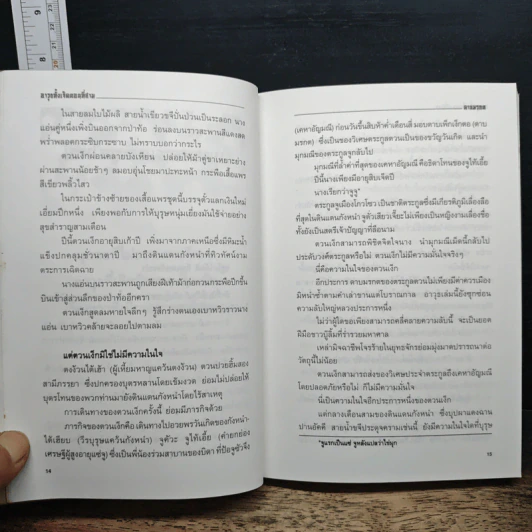 อาวุธสั้งเงินสองสี่ยาม
ในสายลมใบไม้ผลิ สายน้ำเขียวขจีปั่นป่วนเป็นระลอก นาง
แอ่นคู่หนึ่งเพิ่งบินออกจากป่าท้อ ร่อนลงบนราวสะพานสีแดงสด
พร่ำพลอดกระซิบกระซาบ ไม่ทราบบอกว่ากระไร
ตวนเง็กผ่อนคลายบังเหียน ปล่อยให้ม้าคู่ขาเหยาะย่าง
ผ่านสะพานน้อยช้าๆ ลมอบอุ่นโชยมาปะทะหน้า กระพือเสื้อแพร
สีเขียวพลิ้วไสว
ในกระเป๋าข้างซ้ายของเสื้อแพรชุดนี้บรรจุตั๋วแลกเงินใหม่
เอี่ยมปึกหนึ่ง เพียงพอกับการให้บุรุษหนุ่มเยี่ยงมันใช้จ่ายอย่าง
สุขสำราญสามเดือน
ปีนี้ตวนเง็กอายุสิบเก้าปี เพิ่งมาจากภาคเหนือซึ่งหิมะน้ำ
แข็งปกคลุมชั่วนาตาปี มาถึงดินแดนกังหน่ำที่ทิวทัศน์งาม
ตระการเฉิดฉาย
นางแอ่นบนราวสะพานถูกเสียงฝีเท้าม้าก่อกวนกระพือปีกขึ้น
บินเข้าสู่ส่วนลึกของป่าท้ออีกครา
ตวนเง็กสูดลมหายใจลึกๆ รู้สึกร่างตนเองเบาหวิวราวนาง
แอ่น เบาหวิวคล้ายจะลอยไปตามลม
แต่ตวนเง็กมิใช่ไม่มีความในใจ
ตงง้วนไต้เฮ้า (ผู้เหี้ยมหาญแคว้นตงง้วน) ตวนปวยฮิ้มสอง
สามีภรรยา ซึ่งปกครองบุตรหลานโดยเข้มงวด ย่อมไม่ปล่อยให้
บุตรโทนของพวกท่านมายังดินแดนกังหน่ำโดยไร้สาเหตุ
การเดินทางของตวนเง็กครั้งนี้ ย่อมมีภารกิจด้วย
ภารกิจของตวนเง็กคือ เดินทางไปอวยพรวันเกิดของกังหน่ำ
ไต้เฮียบ (วีรบุรุษแคว้นกังหน่ำ) จูห้วะ จูไต้เอี้ย (คำยกย่อง
เศรษฐีผู้สูงอายุแซ่จู) ซึ่งเป็นพี่น้องร่วมสาบานของบิดา ที่ป้อจูซัวจึง
14
ดาบมรกต
(เคหาอัญมณี) ก่อนวันขึ้นสิบห้าค่ำเดือนสี่ มอบดาบเพ็กเง็กตอ (ดาบ
มรกต) ซึ่งเป็นของวิเศษตระกูลตวนเป็นของขวัญวันเกิด และนำ
มุกมณีของตระกูลจูกลับไป
มุกมณีที่ล้ำค่าที่สุดของเคหาอัญมณี คือธิดาโทนของจูไต้เอี้ย
ปีนี้นางเพียงมีอายุสิบเจ็ดปี
นางเรียกว่าจูจู*
ตระกูลจูเมืองโกวโซว เป็นชาติตระกูลซึ่งมีเกียรติภูมิเลื่องลือ
ที่สุดในดินแดนกังหน่ำ จูตั่วเสี่ยวเจี้ยะไม่เพียงเป็นหญิงงามเลื่องชื่อ
ทั้งยังเป็นสตรีเจ้าปัญญาที่ลือนาม
ตวนเง็กสามารถพิชิตจิตใจนาง นำมุกมณีเม็ดนี้กลับไป
ประดับวงศ์ตระกูลหรือไม่ ตวนเง็กไม่มีความมั่นใจจริงๆ
นี่คือความในใจของตวนเง็ก
อีกประการ ดาบมรกตของตระกูลตวนไม่เพียงมีค่าควรเมือง
มีหน้าซ้ำตามคำเล่าขานแต่โบราณกาล อาวุธเล่มนี้ยังซุกซ่อน
ความลับใหญ่หลวงประการหนึ่ง
ไม่ว่าผู้ใดขอเพียงสามารถคลี่คลายความลับนี้ จะเป็นยอด
ฝีมือชาวบู๊ลิ้มที่ร่ำรวยมหาศาล
เหล่ามิจฉาชีพโจรร้ายในยุทธจักรย่อมมุ่งมาดปรารถนาต่อ
วัตถุนี้ไม่น้อย
ตวนเง็กสามารถส่งของวิเศษประจำตระกูลถึงเคหาอัญมณี
โดยปลอดภัยหรือไม่ ก็ไม่มีความมั่นใจ
นี่เป็นความในใจอีกประการหนึ่งของตวนเง็ก
แต่กลางเดือนสามของดินแดนกังหน่ำ ซึ่งบุปผาแดงฉาน
ปานอัคคี สายน้ำขจีประดุจความเช่นนี้ ยังมีความในใจใดที่บุรุษ
*จูแรกเป็นแซ่ จูหลังแปลว่าไข่มุก
15
8
9